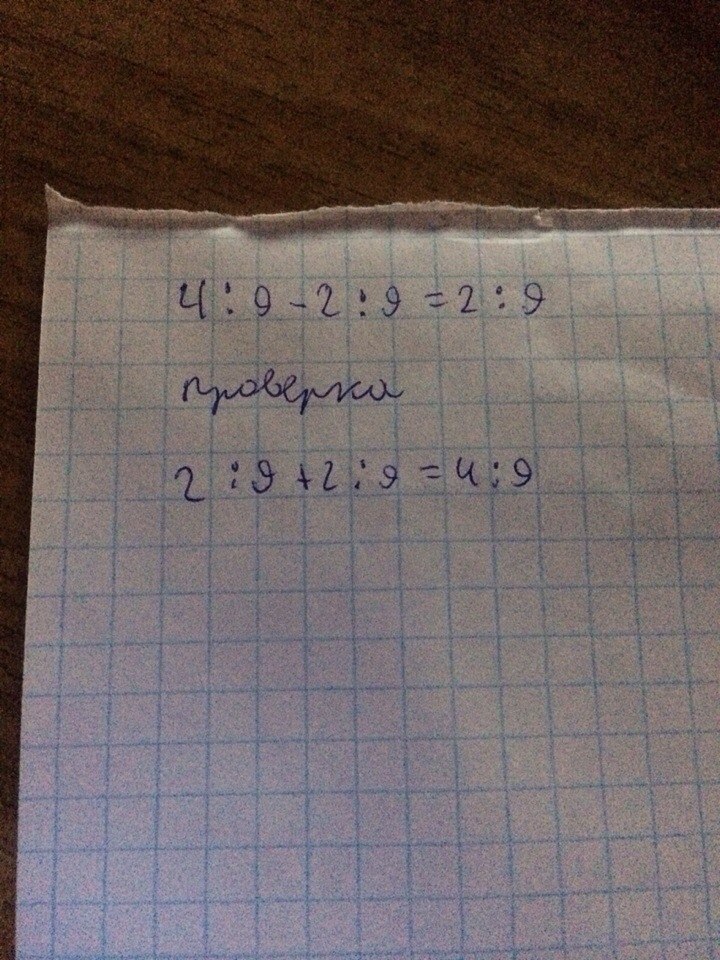 4:9-2:9=2:9
проверка
2:9+2:9=4:9